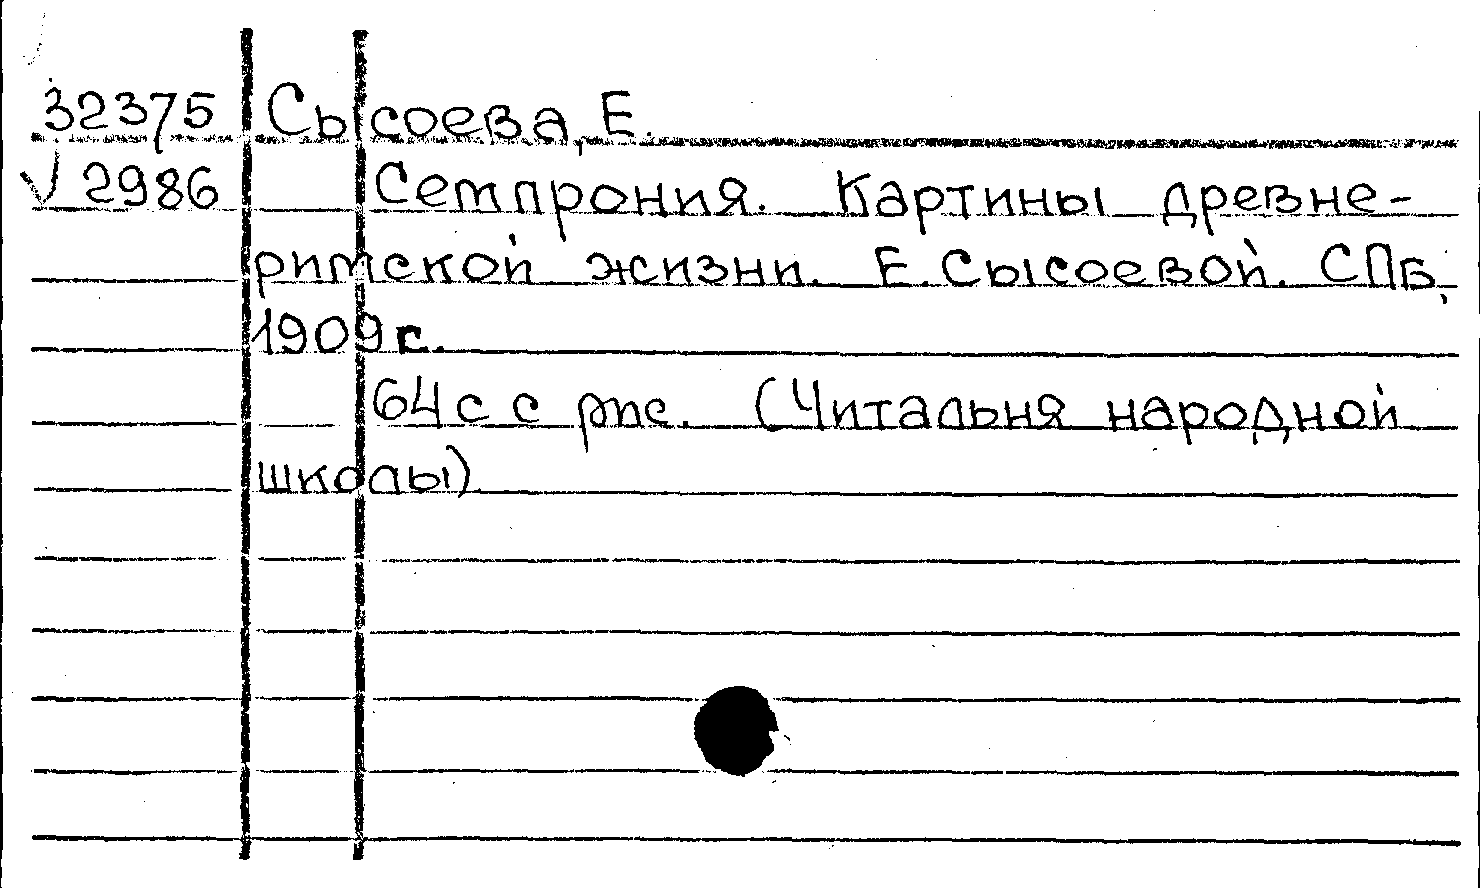 32375 Сысоева, Е.
√ 2986 Семпрония. Картины древне-
римской жизни. Е. Сысоевой. СПб,
1909 г.
64 с с рис. (Читальня народной
школы)